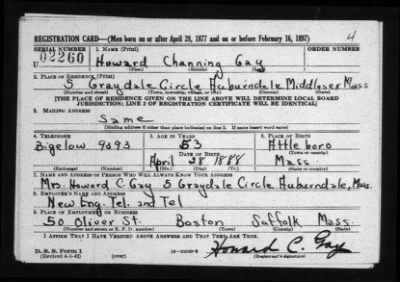 REGISTRATION CARD—(Men born on or after April 28, 1877 and on or before February 16, 1897)
4
SERIAL NUMBER 1. NAME (Print) ORDER NUMBER
U 02260 Howard Channing Gay
(First) (Middle) (Last)
2. PLACE OF RESIDENCE (Print)
5 Graydale Circle Auburndale Middlesex Mass
(Number and street) (Town, township, village, or city) (County) (State)
[THE PLACE OF RESIDENCE GIVEN ON THE LINE ABOVE WILL DETERMINE LOCAL BOARD
JURISDICTION; LINE 2 OF REGISTRATION CERTIFICATE WILL BE IDENTICAL]
3. MAILING ADDRESS
Same
[Mailing address if other than place indicated on line 2. If same insert word same]
4. TELEPHONE 5. AGE IN YEARS 6. PLACE OF BIRTH
Bigelow 9093 53 Attleboro
DATE OF BIRTH (Town or county)
April 28 1888 Mass.
(Exchange) (Number) (Mo.) (Day) (Yr.) (State or country)
7. NAME AND ADDRESS OF PERSON WHO WILL ALWAYS KNOW YOUR ADDRESS
Mrs. Howard C. Gay 5 Graydale Circle, Auburndale, Mass.
8. EMPLOYER'S NAME AND ADDRESS
New Eng. Tel. and Tel
9. PLACE OF EMPLOYMENT OR BUSINESS
50 Oliver St. Boston Suffolk Mass.
(Number and street or R. F. D. number) (Town) (County) (State)
I AFFIRM THAT I HAVE VERIFIED ABOVE ANSWERS AND THAT THEY ARE TRUE.
D. S. S. Form 1
(Revised 4-1-42) (over)
Howard C. Gay
(Registrant's signature)